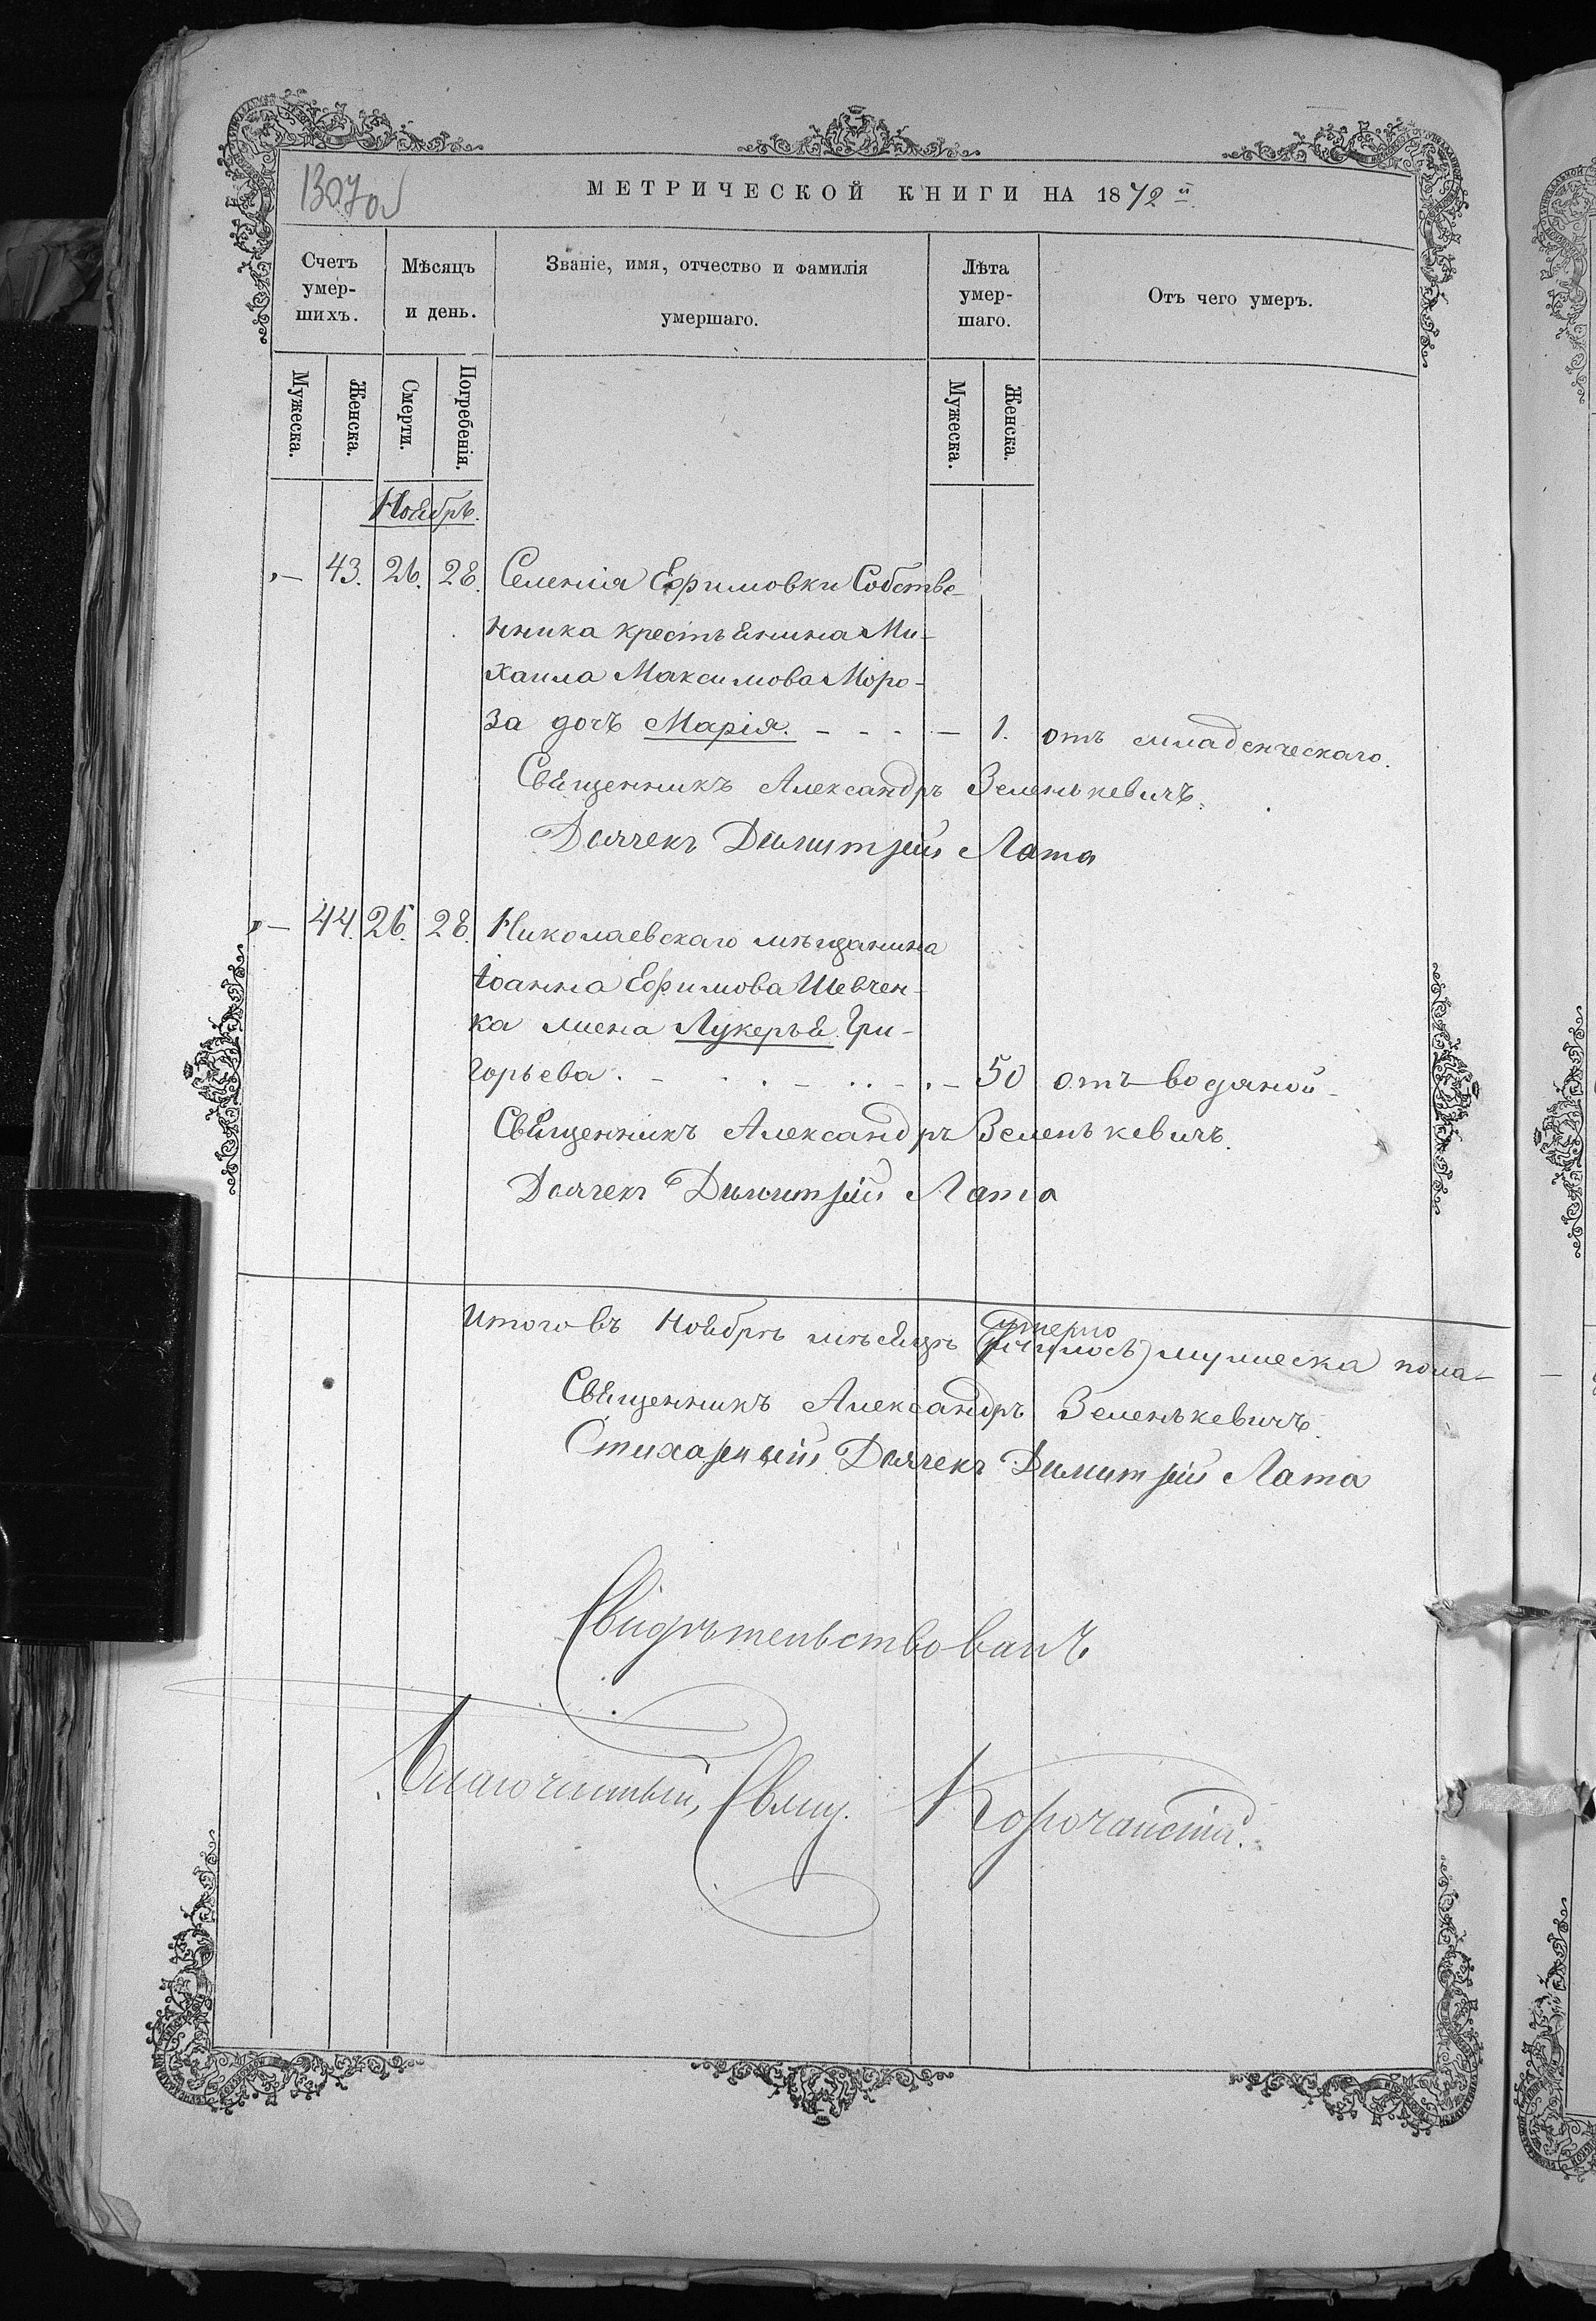 1307об
МЕТРИЧЕСКОЙ КНИГИ НА 1872й
Счетъ умер-шихъ.
Мѣсяцъ и день.
Званіе, имя, отчество и фамилія умершаго.
Лѣта умер-шаго.
Отъ чего умеръ.
Мужеска.
Женска.
Смерти.
Погребенія.
Мужеска.
Женска.
Ноябрь.
„– 43. 26. 28. Селенія Ефимовки Собстве-
нника крестьянина Ми-
хаила Максимова Моро-
за дочь Марія. - - - - — 1. отъ младенческаго.
Священникъ Александръ Зеленькевичъ.
Дьячекъ Димитрій Лата
„– 44. 26. 28. Николаевскаго мѣщанина
Іоанна Ефимова Шевчен-
ка жена Лукерья Гри-
горьева. - . . - . . - . - 50 отъ водяной
Священникъ Александръ Зеленькевичъ.
Дьячекъ Димитрій Лата
Итого въ Ноябрѣ мѣсяцѣ умерло мужеска пола-
Священникъ Александръ Зеленькевичъ.
Стихарный Дьячекъ Димитрій Лата
Свидѣтельствовалъ
Благочинный, Свящ.